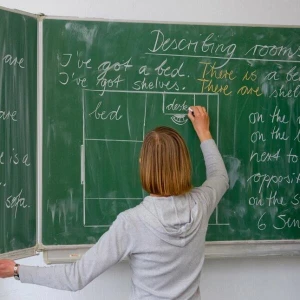 Describing room
I've got a bed. There is a be
I've got shelves. There are shel
are
are
is a
sofa.
bed
desk
on the r
on the l
next to
opposit
on the s
6 Sin